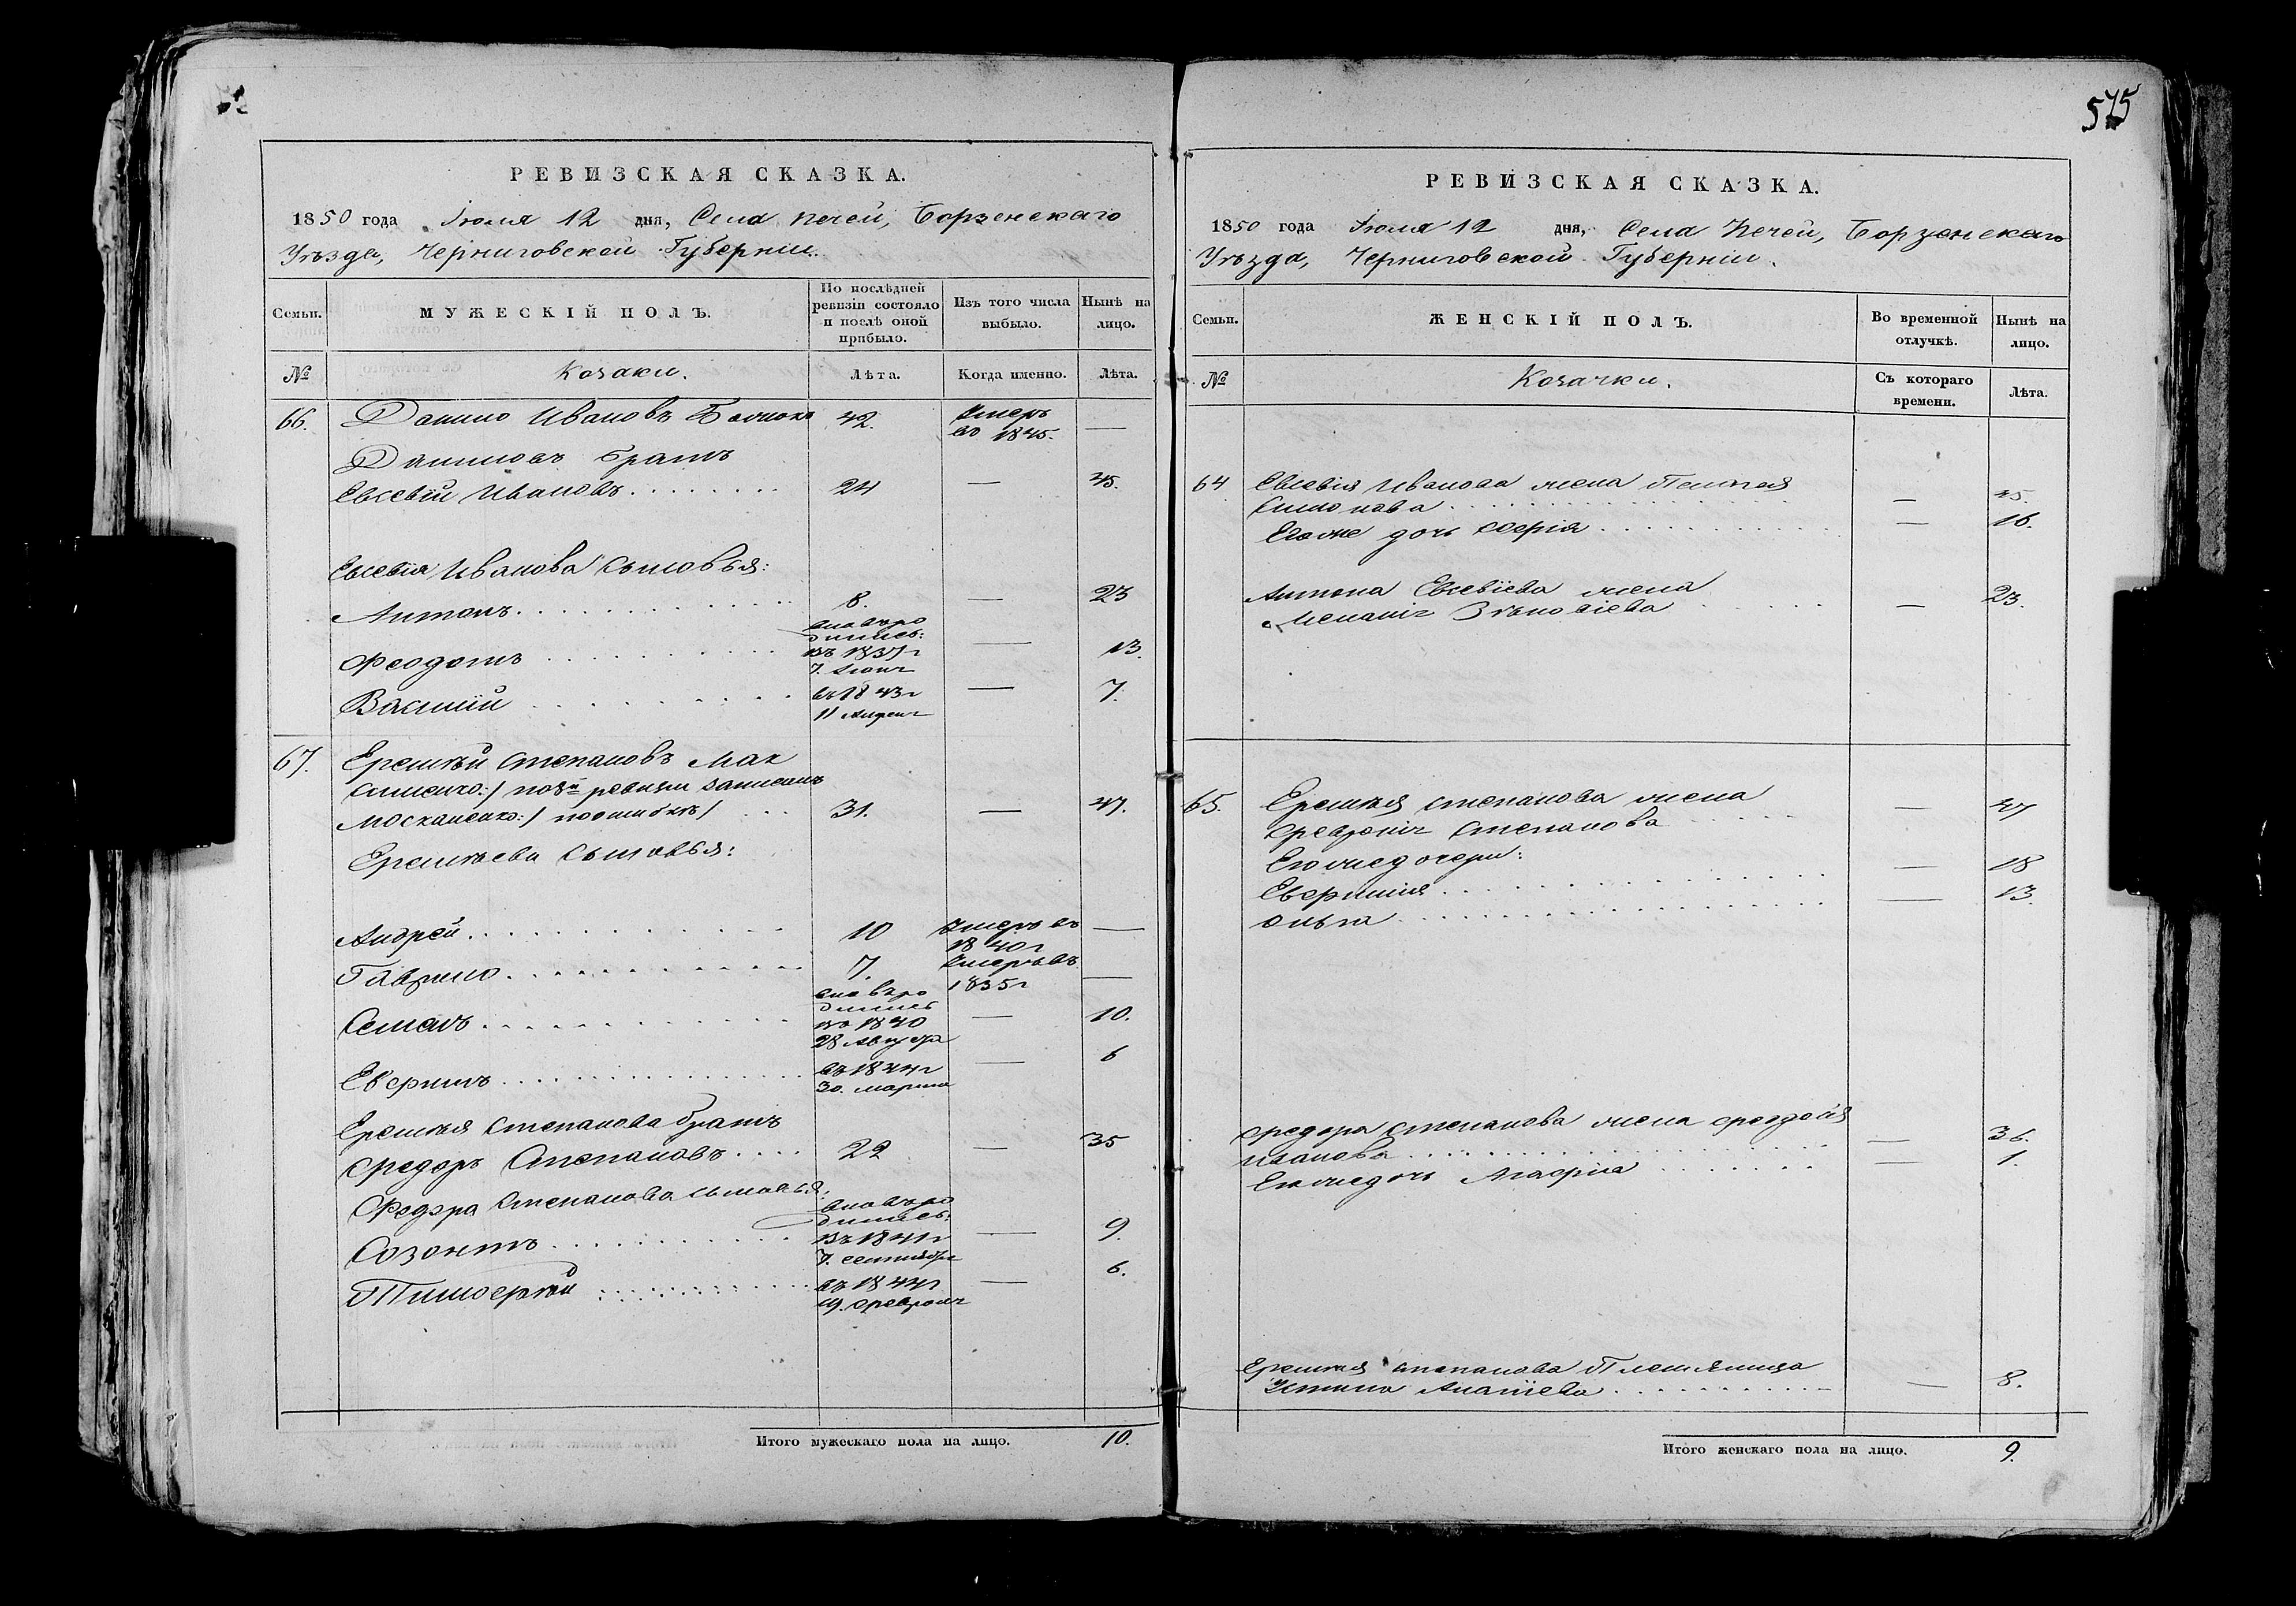 575
РЕВИЗСКАЯ СКАЗКА.
1850 года Июля 12 дня, Села Печей, Борзенскаго
Уѣзда, Черниговской Губерніи.
Семьи.
МУЖЕСКІЙ ПОЛЪ.
По послѣдней ревизіи состояло и послѣ оной прибыло.
Изъ того числа выбыло.
Нынѣ на лицо.
№
Козаки.
Лѣта.
Когда именно.
Лѣта.
66. Данило Ивановъ 42. Умеръ —
въ 1845.
Даниловъ братъ
Евсевій Ивановъ 24 — 45.
Евсевія Иванова сыновья:
Антонъ 8. — 23
вновь ро
дились:
Феодотъ въ 1837г — 13.
7. Іюня
Василий въ 1843г — 7.
11 Апреля
67. Еремѣй Степановъ Мак
сименко:/ по 8й ревизіи записанъ
Москаленко:/ по ошибкѣ/ 31. — 47.
Еремѣева сыновья:
Андрей 10 Умеръ въ —
1840г
Гаврило 7. Умеръ въ —
1835г
вновь ро
дились
Семенъ въ 1840 — 10.
28 Августа
Евфимъ въ 1844г — 6
30. марта
Еремѣя Степанова братъ
Федоръ Степановъ 22 — 35
Федора Степанова сыновья:
вновь ро
дились:
Созонтъ въ 1841г — 9.
7. сентября
Тимофѣй въ 1844г — 6.
19. февраля
Итого мужескаго пола на лицо. 10.
РЕВИЗСКАЯ СКАЗКА.
1850 года Июля 12 дня, Села Печей, Борзенскаго
Уѣзда, Черниговской Губерніи.
Семьи.
ЖЕНСКІЙ ПОЛЪ.
Во временной отлучкѣ.
Нынѣ на лицо.
№
Козачки.
Съ котораго времени.
Лѣта.
64 Евсевія Иванова жена Пелагея
— 45.
Его же дочь Софія — 16.
Антона Евсевіева жена
Меланія Зѣновіева — 23.
65. Еремѣя Степанова жена — 47
Февронія Степанова
Его же дочери:
Евфимія — 18
Ольга — 13.
Федора Степанова жена Феодосія
Иванова — 36.
Его же дочь Агафія — 1.
Еремѣя Степанова Племяница
Устина Ананіева — 8.
Итого женскаго пола на лицо. 9.